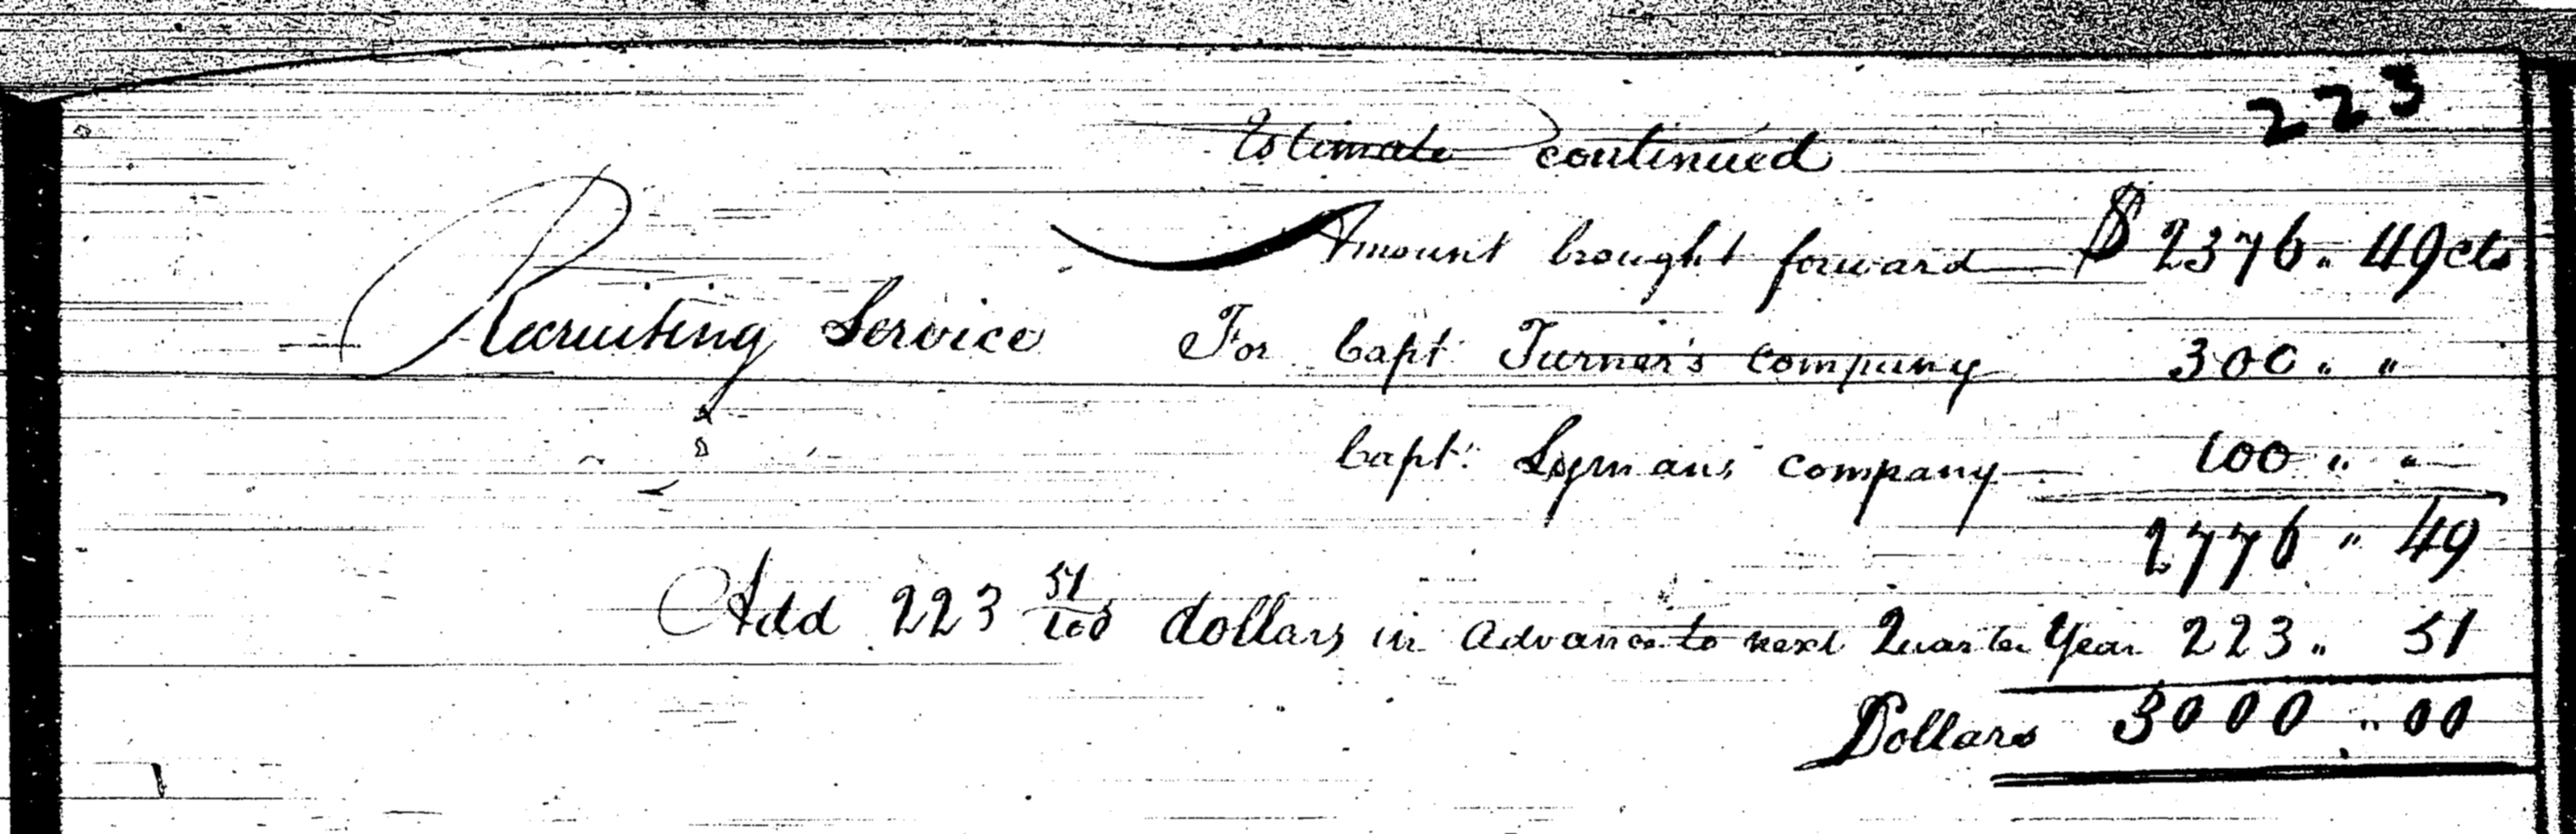 223
Estimate continued
Amount brought forward $ 2376 " 49 cts
Recruiting Service For Capt Turner's company 300 " "
Capt. Lymans company 100 " "
2776 " 49
Add 223 51/100 dollars in advance to next Quarter Year 223 " 51
Dollars 3000 " 00